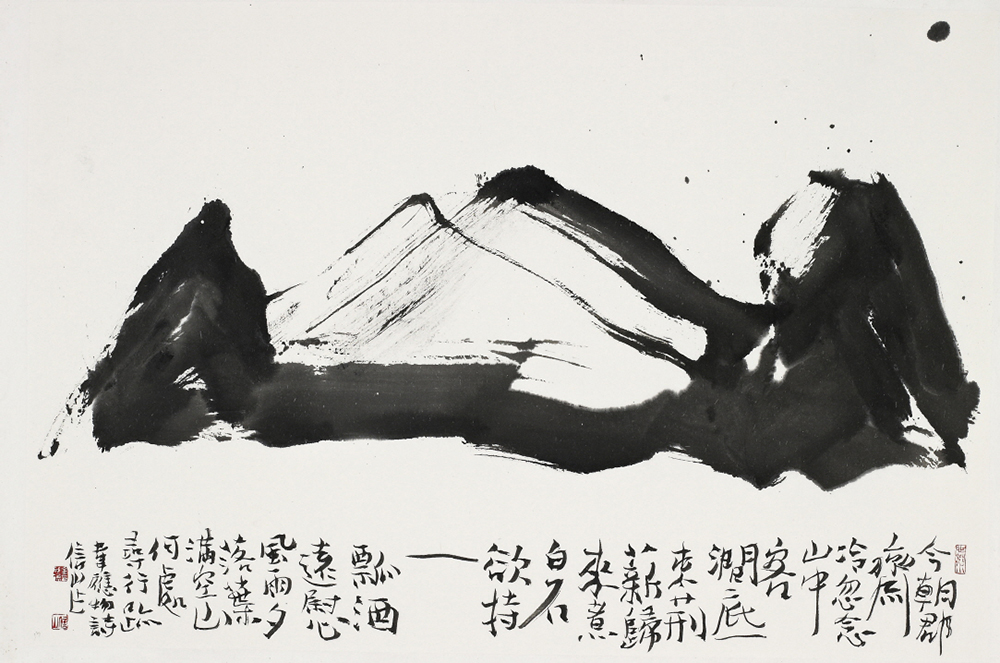 今朝郡
齋
冷忽念
山中
客
澗底
束荊
薪歸
來煮
白石
欲持
一
瓢酒
遠慰
風雨夕
落葉
滿空山
何處
尋行跡
韋應物詩